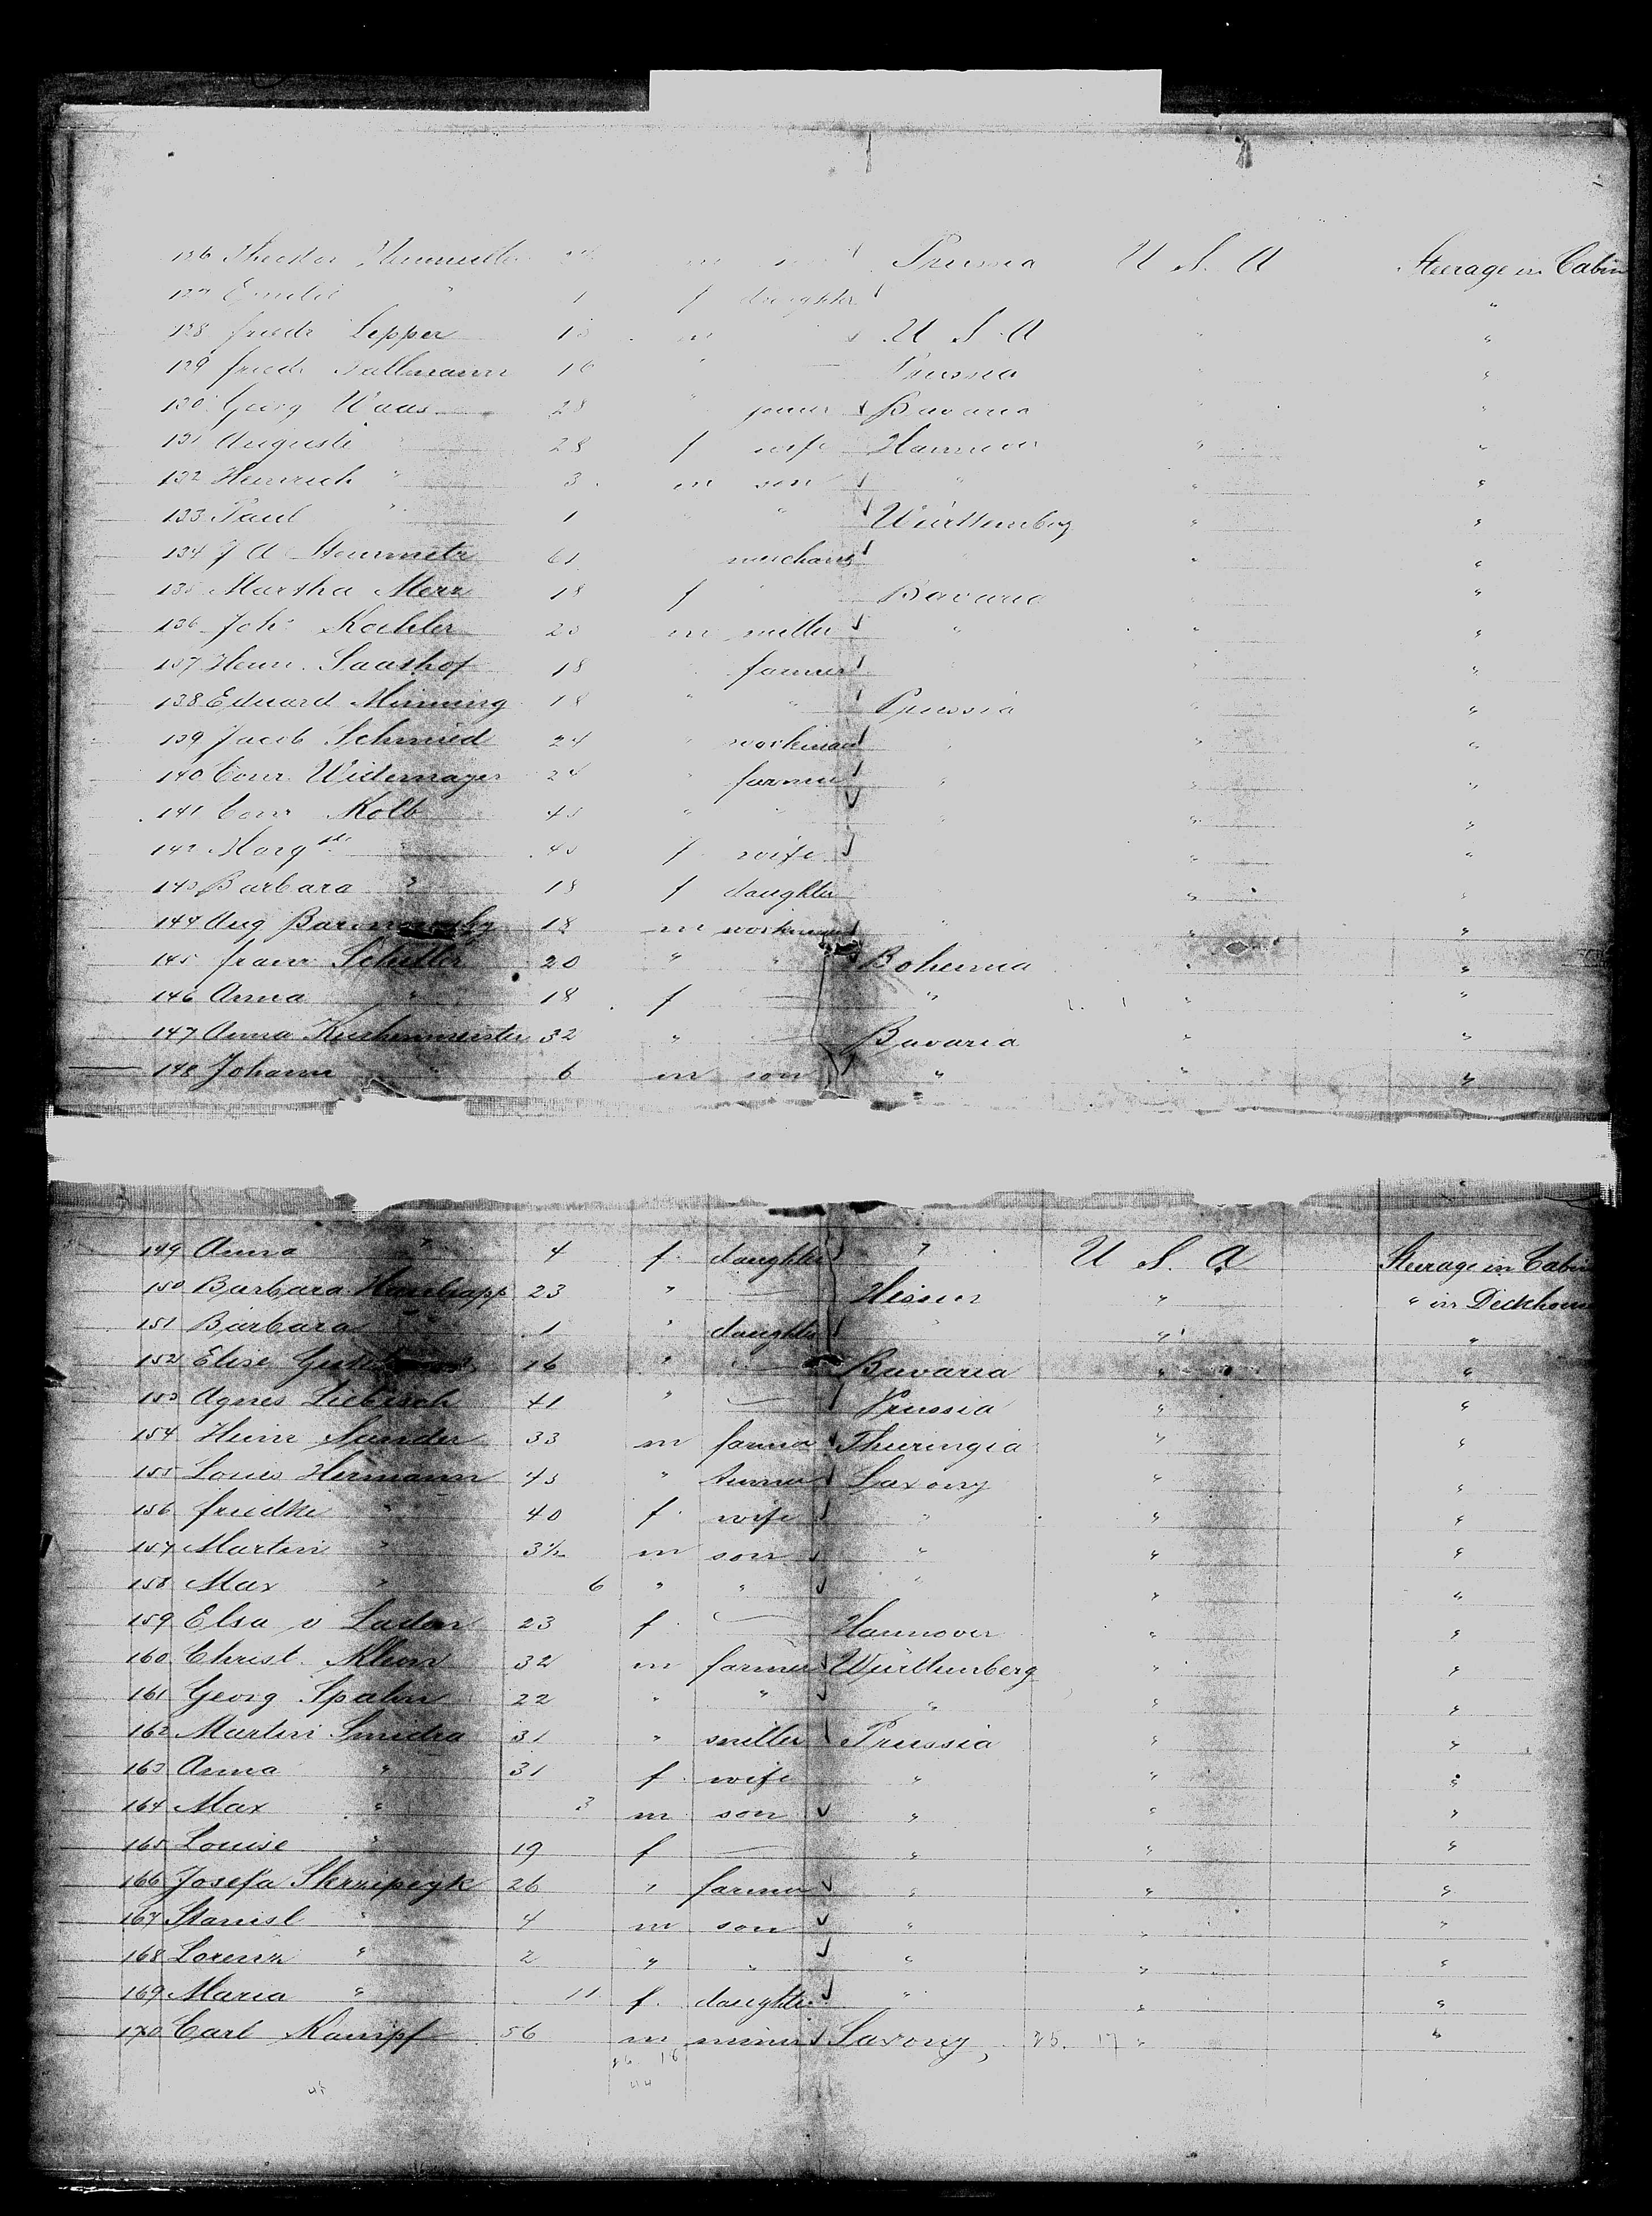 126 Prussia U S. A Steerage in Cabin
127 Emilie " 1 f daughter "
128 friedr Lepper m U S. A "
129 friedr 16 " Prussia "
130 Georg Waas 28 " Bavaria "
131 Auguste " 28 f wife Hannover " "
132 Heinrich " 3 m son " " "
133 Paul " 1 " Württemberg " "
134 J A Steinmetz 61 merchant " "
135 Martha Merz 18 f Bavaria "
136 Joh. Koehler m miller " " "
137 Heinr. Saashof 18 farmer " "
138 Eduard Minning 18 " " Prussia " "
139 Jacob Schmied 24 " workman " "
140 Conr. Widemayer 24 " farmer " " "
141 Conr Kolb " " " " "
142 Margth " f wife " "
143 Barbara " 18 f daughter " "
144 Aug 18 m workman " " "
145 franz 20 " " Bohemia " "
146 Anna " 18 f " " "
147 Anna Kushenmeister 32 " Bavaria " "
148 Johann " 6 m son " " "
149 Anna " 4 f. daughter " U S. A Steerage in Cabin
150 Barbara 23 " Hessen " " in Deckhouse
151 Barbara " 1 " daughter " " "
152 Elise 16 " Bavaria " "
153 Agnes Liebisch 41 " Prussia " "
154 Heinr Sander 33 m farmer Thuringia " "
155 Louis Hermann 43 " Saxony " "
156 friedke " 40 f. wife " " "
157 Martin " 3½ m son " " "
158 Max " 6 " " " " "
159 Elsa v 23 f. Hannover " "
160 Christ. Klein 32 m farmer Württemberg " "
161 Georg Spahn 22 " " " " "
162 Martin Smidra 31 " miller Prussia " "
163 Anna " 31 f. wife " " "
164 Max " 3 m son " " "
165 Louise " 19 f " " "
166 Josefa Skrzipczyk 26 " farmer " " "
167 Stanisl " 4 m son " " "
168 Lorenz " 2 " " " " "
169 Maria " 11 f. daughter " " "
170 Carl Kampf 56 m miner Saxony, " "